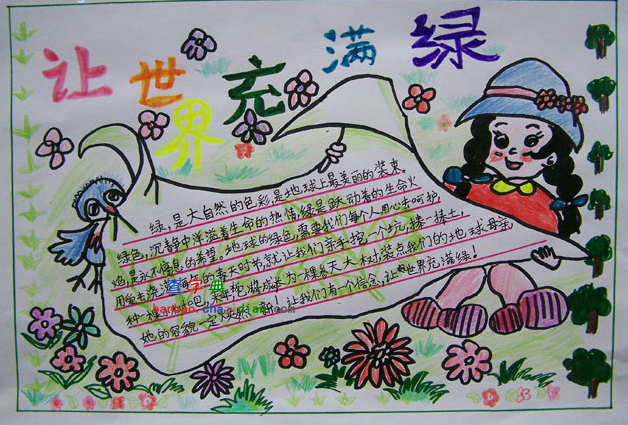 让世界充满绿
绿,是大自然的色彩,是地球上最美的的装束。
绿色,沉静中洋溢着生命的热情,绿是跃动着的生命火
焰,是永不信息的希望。地球的绿色,需要我们每个人用心去呵护,
用爱去浇灌。每年的春天时节,就让我们亲手挖一个坑,捧一捧土,
种一棵 吧,来年它将成长为一棵 天大树,装点我们的地球母亲,
她的容貌一定焕然 新!让我们有一个信念,让世界充满绿!
查字典